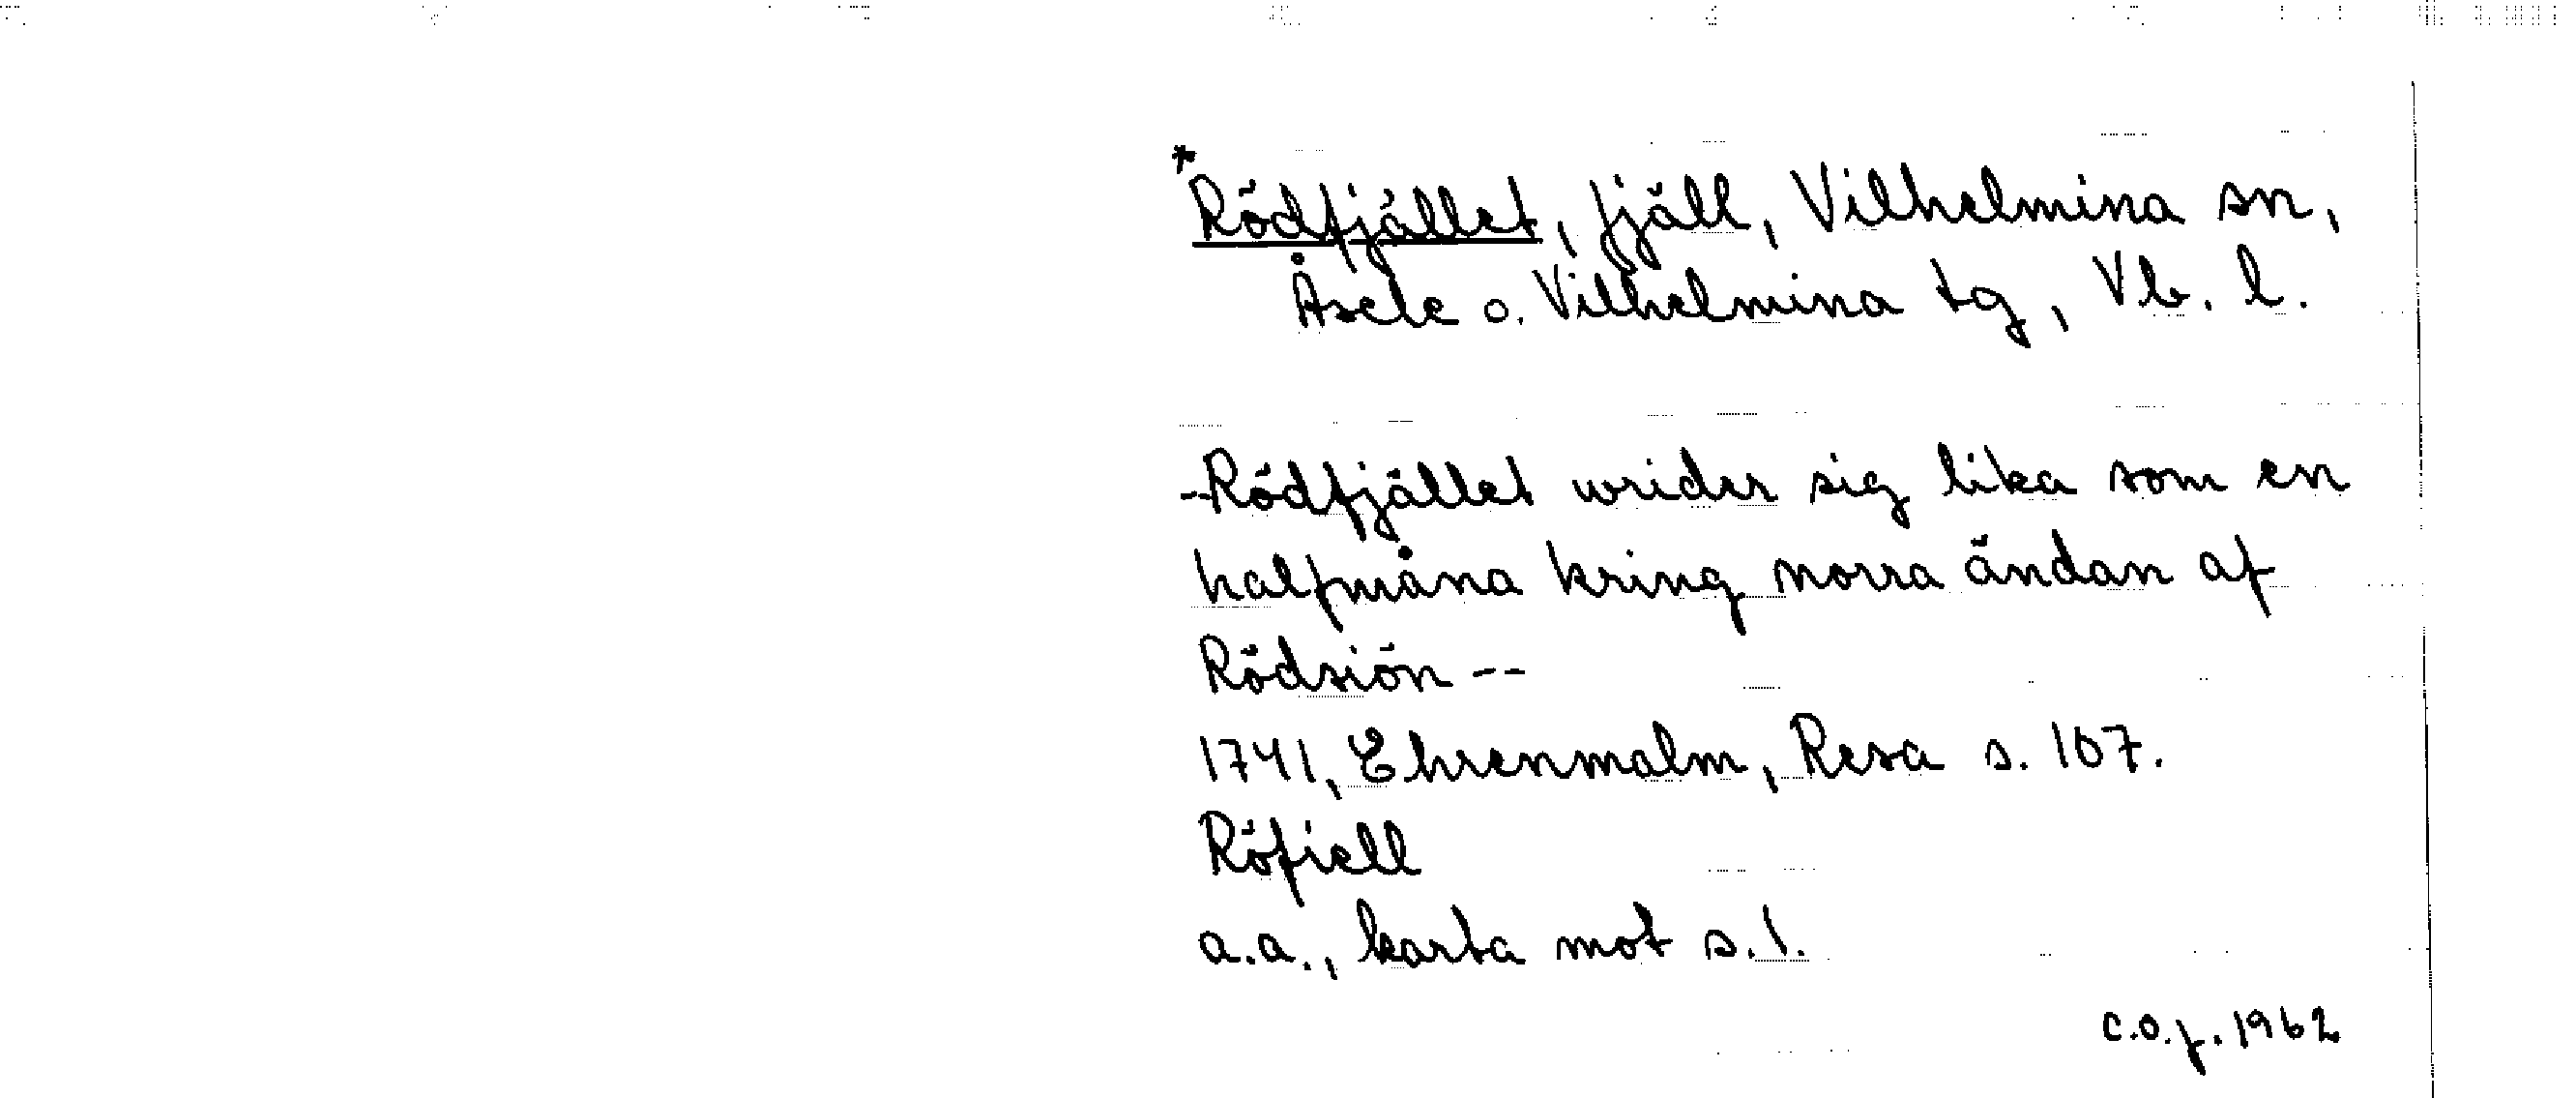 *Rödfjället, fjäll, Vilhelmina sn,
Åsele o. Vilhelmina tg, Vb. l.
--Rödfjället wrider sig lika som en
halfmåna kring norra ändan af
Rödsiön --
1741, Ehrenmalm, Resa s. 107.
Röfiell
a.a., karta mot s. 1.
C.O.f. 1962